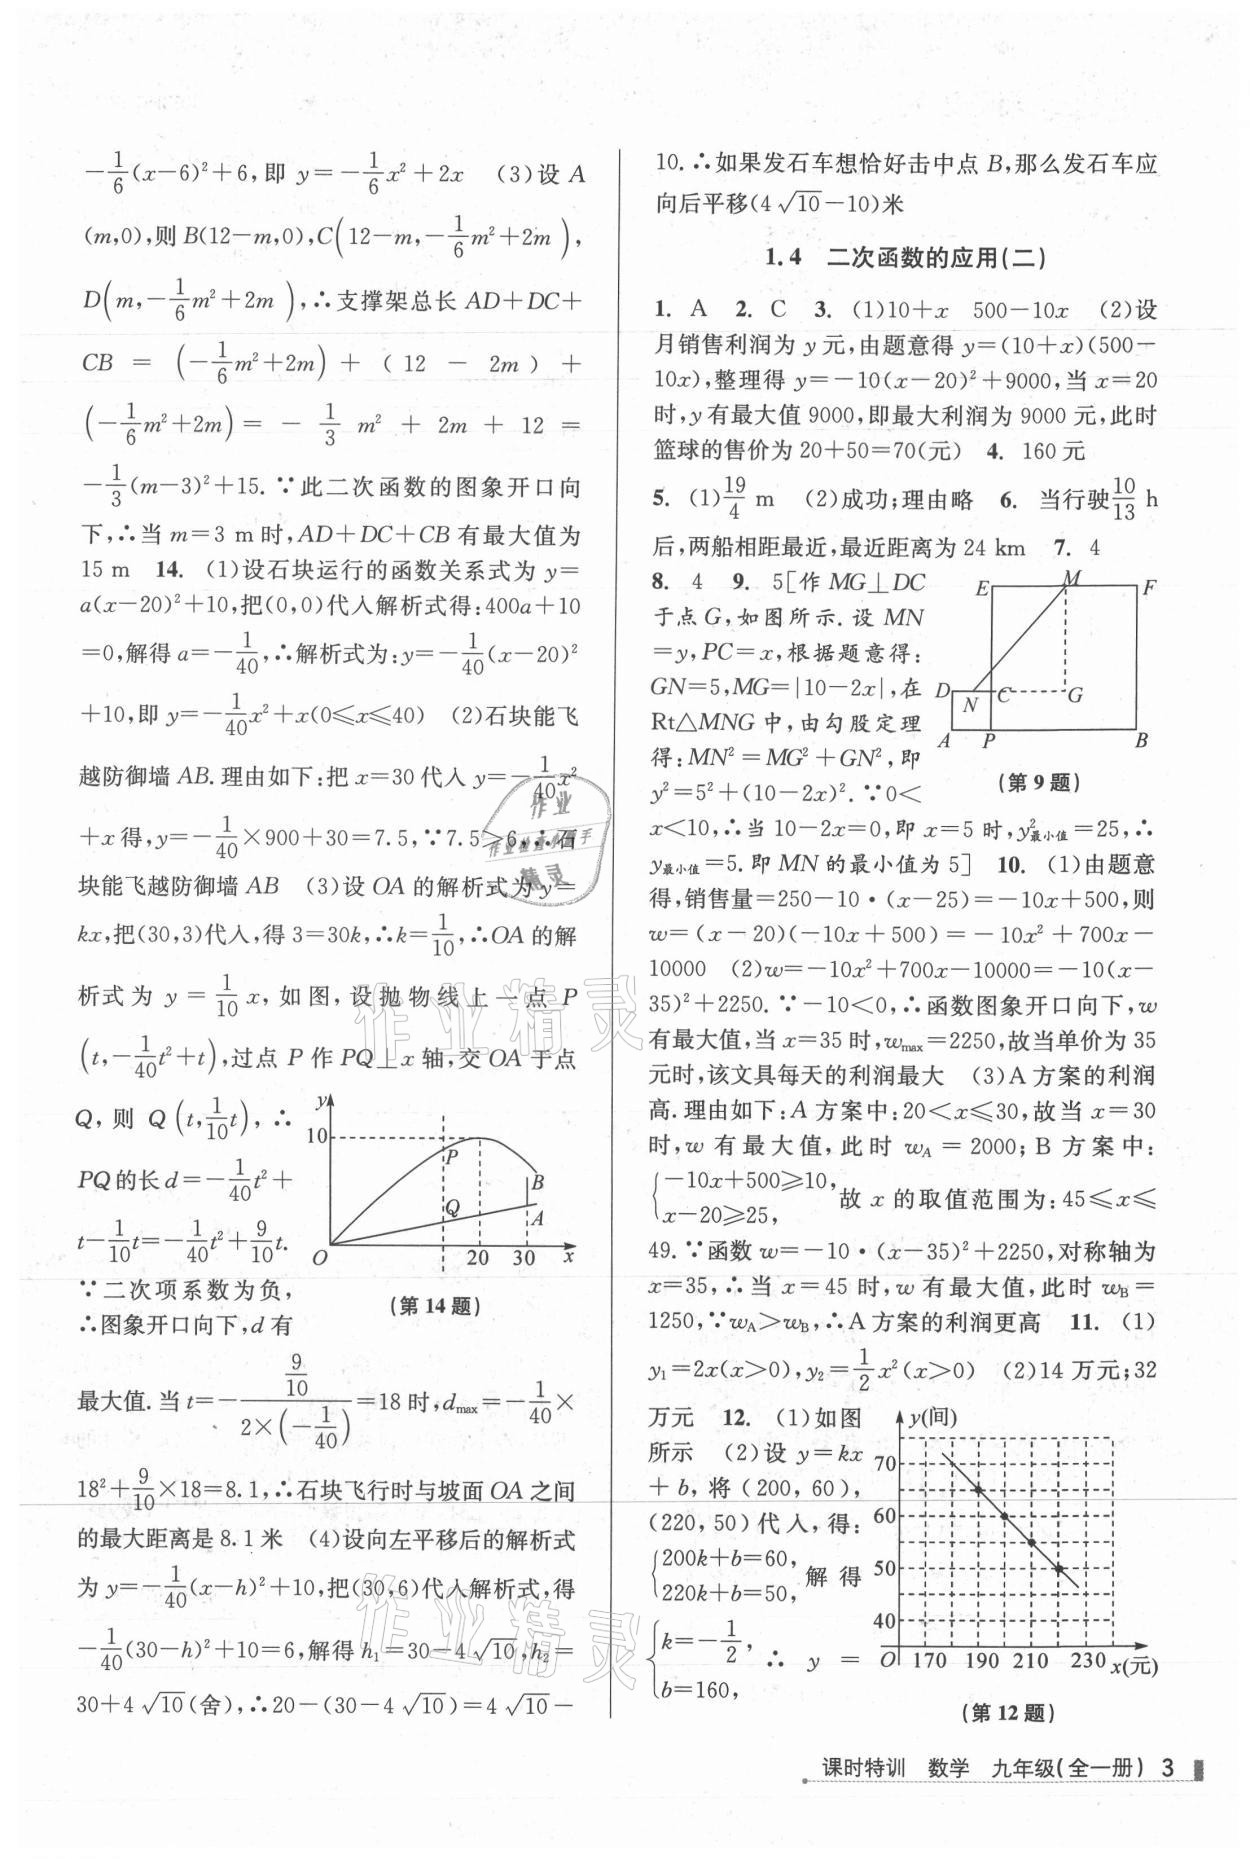 -1/6(x-6)²+6,即 y=-1/6x²+2x　(3)设 A
(m,0),则 B(12-m,0),C(12-m,-1/6m²+2m),
D(m,-1/6m²+2m),∴支撑架总长 AD+DC+
CB = (-1/6m²+2m) + (12 - 2m) +
(-1/6m²+2m) = -1/3 m² + 2m + 12 =
-1/3(m-3)²+15.∵此二次函数的图象开口向
下,∴当 m=3 m 时,AD+DC+CB 有最大值为
15 m　14. (1)设石块运行的函数关系式为 y=
a(x-20)²+10,把(0,0)代入解析式得:400a+10
=0,解得 a=-1/40,∴解析式为:y=-1/40(x-20)²
+10,即 y=-1/40x²+x(0≤x≤40)　(2)石块能飞
越防御墙 AB.理由如下:把 x=30 代入 y=-1/40x²
+x 得,y=-1/40×900+30=7.5,∵7.5>6,∴石
块能飞越防御墙 AB　(3)设 OA 的解析式为 y=
kx,把(30,3)代入,得 3=30k,∴k=1/10,∴OA 的解
析式为 y=1/10x,如图,设抛物线上一点 P
(t,-1/40t²+t),过点 P 作 PQ⊥x 轴,交 OA 于点
Q,则 Q(t,1/10t),∴
PQ 的长 d=-1/40t²+
t-1/10t=-1/40t²+9/10t.
∵二次项系数为负,
∴图象开口向下,d 有
y
10
P
B
Q
A
O
20
30
x
(第14题)
最大值.当 t=-(9/10)/(2×(-1/40))=18 时,dmax=-1/40×
18²+9/10×18=8.1,∴石块飞行时与坡面 OA 之间
的最大距离是 8.1 米　(4)设向左平移后的解析式
为 y=-1/40(x-h)²+10,把(30,6)代入解析式,得
-1/40(30-h)²+10=6,解得 h₁=30-4√10,h₂=
30+4√10(舍),∴20-(30-4√10)=4√10-
10.∴如果发石车想恰好击中点 B,那么发石车应
向后平移(4√10-10)米
1.4　二次函数的应用(二)
1. A　2. C　3. (1)10+x　500-10x　(2)设
月销售利润为 y 元,由题意得 y=(10+x)(500-
10x),整理得 y=-10(x-20)²+9000,当 x=20
时,y 有最大值 9000,即最大利润为 9000 元,此时
篮球的售价为 20+50=70(元)　4. 160 元
5. (1)19/4 m　(2)成功;理由略　6. 当行驶10/13 h
后,两船相距最近,最近距离为 24 km　7. 4
8. 4　9. 5[作 MG⊥DC
于点 G,如图所示.设 MN
=y,PC=x,根据题意得:
GN=5,MG=|10-2x|,在
Rt△MNG 中,由勾股定理
得:MN²=MG²+GN²,即
y²=5²+(10-2x)².∵0<
E
M
F
D
N
C
G
A
P
B
(第9题)
x<10,∴当 10-2x=0,即 x=5 时,y²最小值=25,∴
y最小值=5.即 MN 的最小值为 5]　10. (1)由题意
得,销售量=250-10·(x-25)=-10x+500,则
w=(x-20)(-10x+500)=-10x²+700x-
10000　(2)w=-10x²+700x-10000=-10(x-
35)²+2250.∵-10<0,∴函数图象开口向下,w
有最大值,当 x=35 时,wmax=2250,故当单价为 35
元时,该文具每天的利润最大　(3)A 方案的利润
高.理由如下:A 方案中:20<x≤30,故当 x=30
时,w 有最大值,此时 wA=2000;B 方案中:
{-10x+500≥10, x-20≥25, 故 x 的取值范围为:45≤x≤
49.∵函数 w=-10·(x-35)²+2250,对称轴为
x=35,∴当 x=45 时,w 有最大值,此时 wB=
1250,∵wA>wB,∴A 方案的利润更高　11. (1)
y₁=2x(x>0),y₂=1/2x²(x>0)　(2)14 万元;32
万元　12. (1)如图
所示　(2)设 y=kx
+b,将(200,60),
(220,50)代入,得:
{200k+b=60, 220k+b=50, 解得
{k=-1/2, b=160, ∴ y =
y(间)
70
60
50
40
O
170
190
210
230
x(元)
(第12题)
课时特训　数学　九年级(全一册)　3
作业
作业检查小助手
精灵
作业精灵
作业精灵